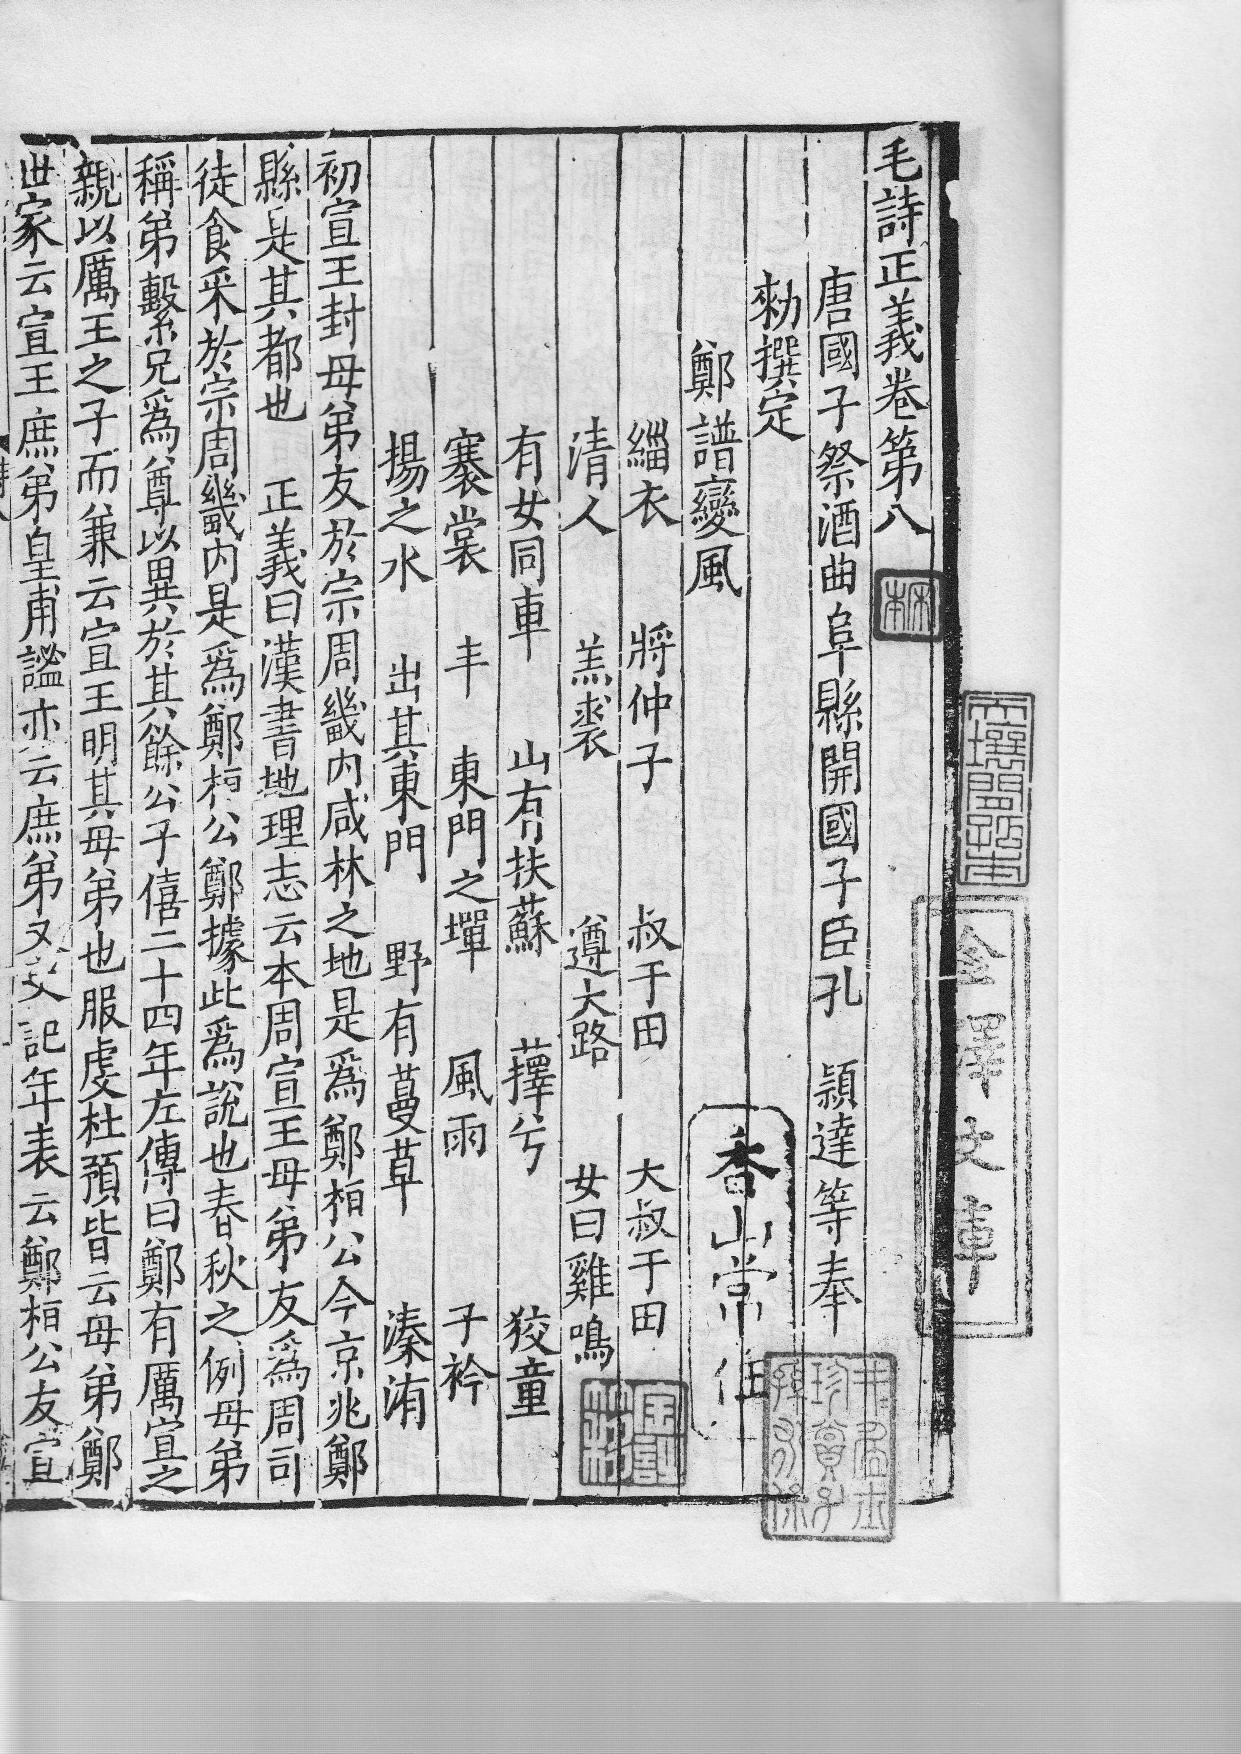 毛詩正義卷第八
唐國子祭酒曲阜縣開國子臣孔　穎達等奉
勑撰定
鄭譜變風
緇衣　將仲子　叔于田　大叔于田
清人　羔裘　遵大路　女曰雞鳴
有女同車　山有扶蘇　蘀兮　狡童
褰裳　丰　東門之墠　風雨　子衿
揚之水　出其東門　野有蔓草　溱洧
初宣王封母弟友於宗周畿内咸林之地是爲鄭桓公今京兆鄭
縣是其都也　正義曰漢書地理志云本周宣王母弟友爲周司
徒食采於宗周畿内是爲鄭桓公鄭據此爲說也春秋之例母弟
稱弟繫兄爲尊以異於其餘公子僖二十四年左傳曰鄭有厲宣之
親以厲王之子而兼云宣王明其母弟也服虔杜預皆云母弟鄭
世家云宣王庶弟皇甫謐亦云庶弟又史記年表云鄭桓公友宣
金澤文庫
香山常住